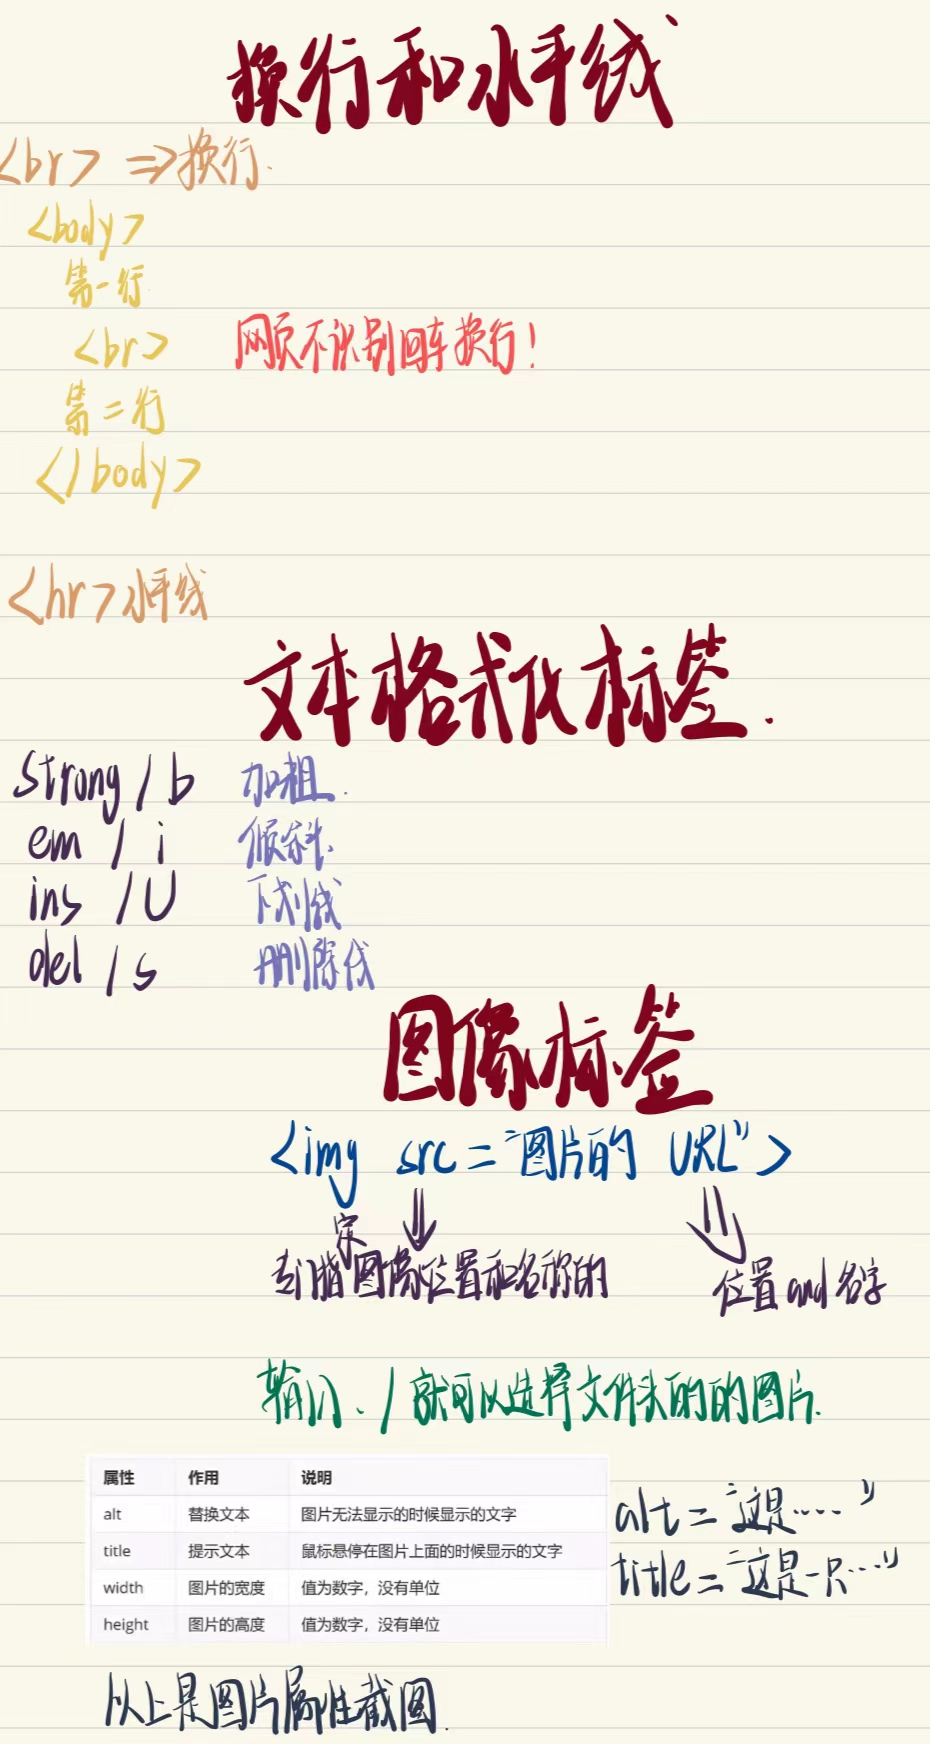 换行和水平线
<br> => 换行.
<body>
第一行
<br> 网页不识别回车换行!
第二行
</body>
<hr>水平线
文本格式化标签.
strong / b 加粗.
em / i 倾斜.
ins / U 下划线
del / s 删除线
图像标签
<img src="图片的 URL">
专门指定图像位置和名称的 位置and名字
输入 . / 就可以选择文件夹的的图片.
属性 作用 说明
alt 替换文本 图片无法显示的时候显示的文字
title 提示文本 鼠标悬停在图片上面的时候显示的文字
width 图片的宽度 值为数字，没有单位
height 图片的高度 值为数字，没有单位
alt="这是....."
title="这是一只...."
以上是图片属性截图.